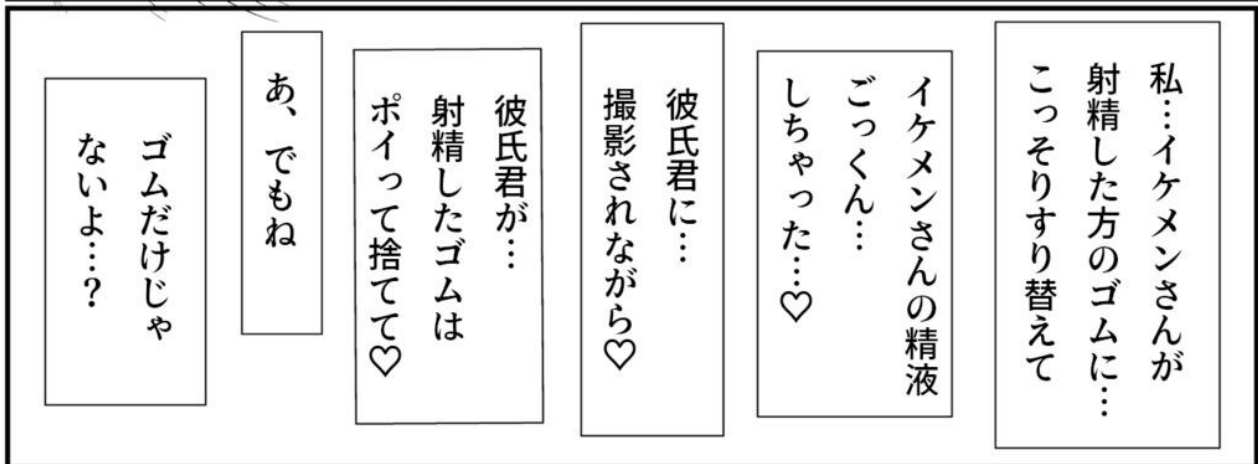 私…イケメンさんが
射精した方のゴムに…
こっそりすり替えて
イケメンさんの精液
ごっくん…
しちゃった…♡
彼氏君に…
撮影されながら♡
彼氏君が…
射精したゴムは
ポイって捨てて♡
あ、でもね
ゴムだけじゃ
ないよ…?